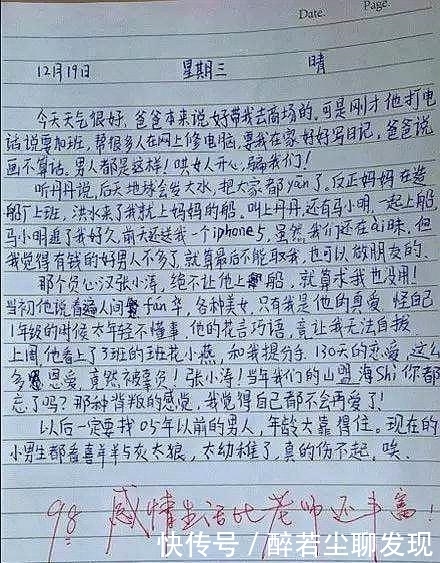 Date.
Page.
12月19日 星期三 晴
今天天气很好,爸爸本来说好带我去商场的,可是刚才他打电
话说要加班,帮很多人在网上修电脑,要我在家好好写日记,爸爸说
画不算话。男人都是这样!哄女人开心,骗我们!
听丹丹说,后天地球会发大水,把大家都yān了。反正妈妈在造
船厂上班,洪水来了我就上妈妈的船。叫上丹丹,还有马小明,一起上船,
马小明追了我好久,前天还送我一个iphone5,虽然我们还在ai昧,但
我觉得有钱的好男人不多了,就算最后不能娶我,也可以做朋友的。
那个负心汉张小涛,绝不让他上船,就算求我也没用!
当初他说看遍人间fán华,各种美女,只有我是他的真爱,怪自己
1年级的时候太年轻不懂事,他的花言巧语,竟让我无法自拔
上周他看上了3班的班花小燕,和我提分手,130天的恋爱,这么
多恩爱,竟然被辜负!张小涛!当年我们的山盟海Shi你都
忘了吗?那种背叛的感觉,我觉得自己都不会再爱了!
以后一定要找05年以前的男人,年龄大靠得住。现在的
小男生都看喜羊羊与灰太狼,太幼稚了,真的伤不起,唉、
98 感情生活比老师还丰富!
快传号/醉若尘聊发现